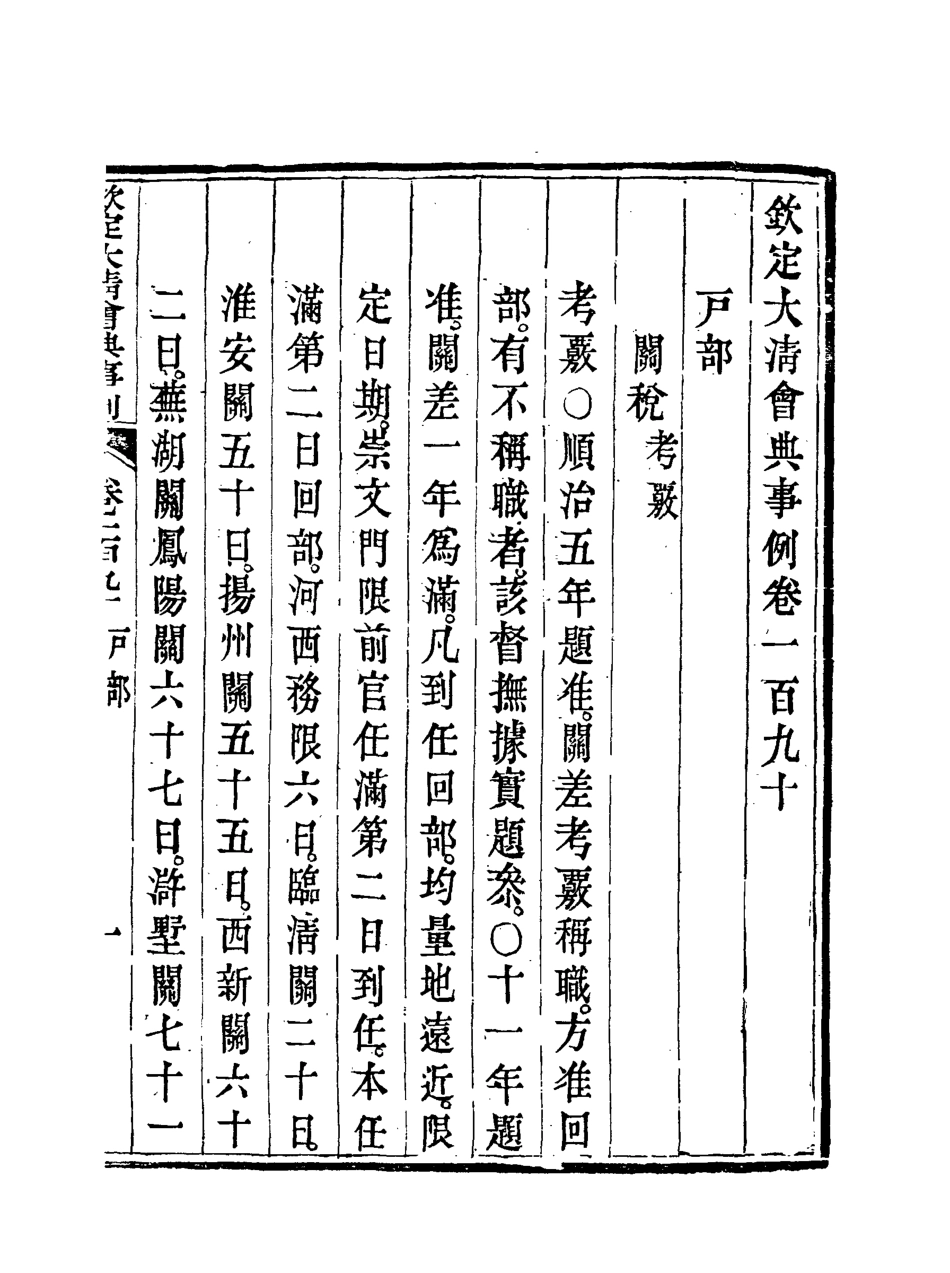 欽定大清會典事例卷一百九十
戸部
關稅考覈
考覈○順治五年題准。關差考覈稱職。方准回
部。有不稱職者。該督撫據實題叅。○十一年題
准。關差一年爲滿。凡到任回部。均量地遠近。限
定日期。崇文門限前官任滿第二日到任。本任
滿第二日回部。河西務限六日。臨淸關二十日。
淮安關五十日。揚州關五十五日。西新關六十
二日。蕪湖關鳳陽關六十七日。滸墅關七十一
欽定大清會典事例 卷一百九十 戸部 一